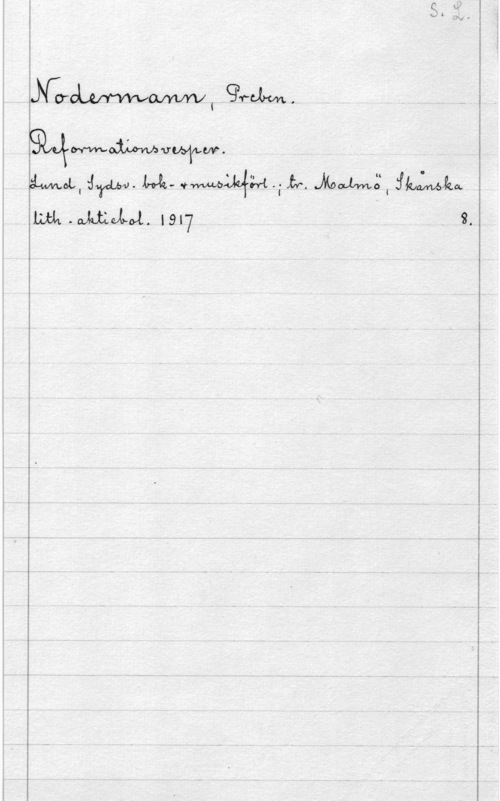 S. L.
Nodermann, Preben.
Reformationsvesper.
Lund, Sydsv. bok- o musikförl.; tr. Malmö, Skånska
lith. aktiebol. 1917 8.